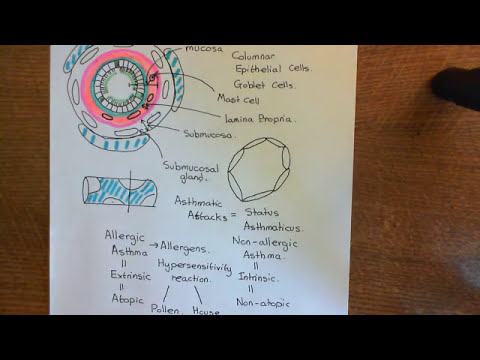 mucosa
Columnar
Epithelial Cells.
Goblet Cells.
Mast Cell
Lamina Propria.
Submucosa.
Submucosal
gland.
Asthmatic
Attacks = Status
Asthmaticus.
Allergic
Asthma → Allergens.
||
Extrinsic
||
Atopic
Hypersensitivity
reaction.
Pollen. House
Non-allergic
Asthma.
||
Intrinsic.
||
Non-atopic